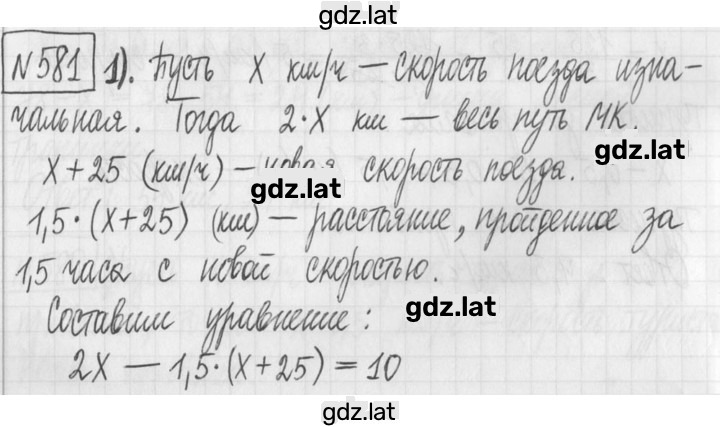 gdz.lat
№581 1). Пусть x км/ч — скорость поезда изна-
чальная. Тогда 2·x км — весь путь МК.
gdz.lat
x + 25 (км/ч) — новая скорость поезда.
gdz.lat
1,5·(x+25) (км) — расстояние, пройденное за
1,5 часа с новой скоростью.
gdz.lat
Составим уравнение:
2x — 1,5·(x+25) = 10
gdz.lat